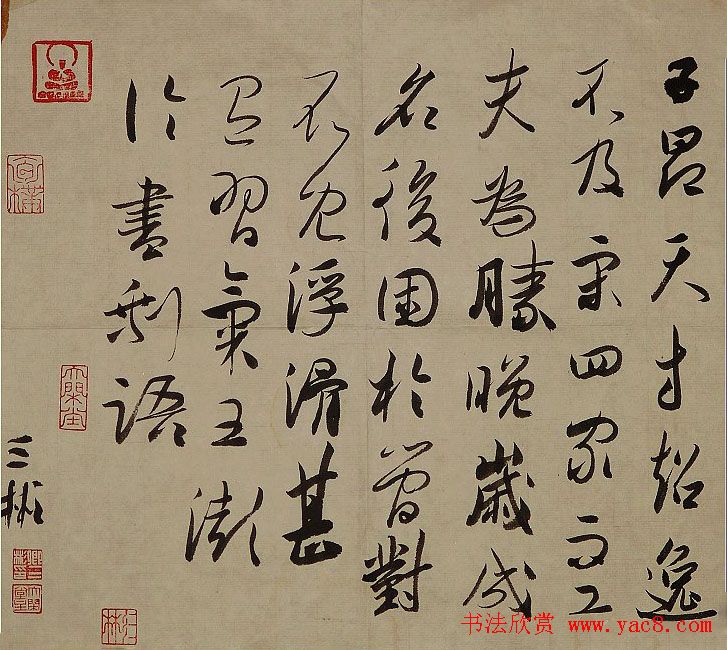 子昂天才超逸
不及宋四家而工
夫為勝晚歲成
名後困於對
不免浮滑甚
有習氣王澍
論書剩語
三彬
书法欣赏 www.yac8.com